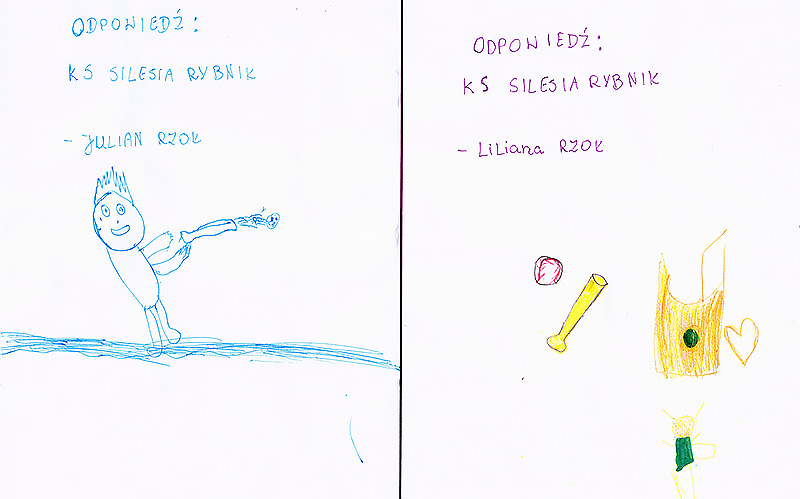 ODPOWIEDŹ:
KS SILESIA RYBNIK
- JULIAN RZOK
ODPOWIEDŹ:
KS SILESIA RYBNIK
- LiLiana RZOK